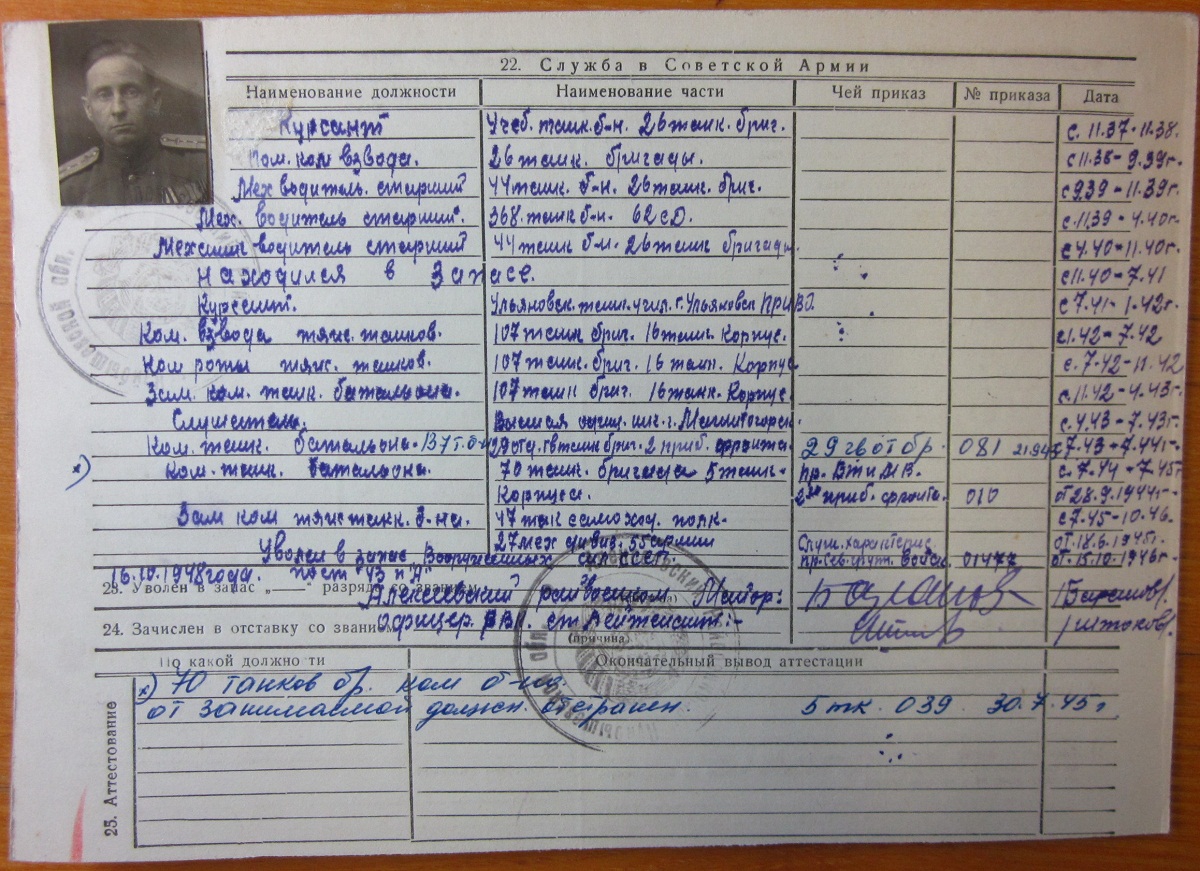 22. Служба в Советской Армии
Наименование должности Наименование части Чей приказ № приказа Дата
Курсант Учеб. танк. б-н. 26 танк. бриг. с. 11.37-11.38.
Ком. взвода. 26 танк. бригады. с 11.38-9.39г.
Мех водитель. старший 44 танк. б-н. 26 танк. бриг. с 9.39-11.39г.
Мех. водитель старший. 368 танк б-н. 62 сд. с. 11.39-4.40г.
Механик водитель старший 44 танк б-н. 26 танк бригады. с 4.40-11.40г.
Находился в Запасе. с 11.40-7.41
Курсант. Ульяновск. танк. учил. г. Ульяновск ПриВО. с 7.41-1.42г.
Ком. взвода тяж. танков. 107 танк бриг. 16 танк. Корпус. с 1.42-7.42
Ком роты тяж. танков. 107 танк. бриг. 16 танк. Корпус с. 7.42-11.42
Зам. ком. танк. батальона. 107 танк бриг. 16 танк. Корпус с. 11.42-4.43г.
Слушатель. Высшая офиц. шк. г. Магнитогорск. с. 4.43-7.43г.
Ком. танк. батальона. 137 т.б-н 29 отд. гв танк бриг. 2 приб. фронта. 29 гв от бр. 081 7.43-7.44г.
х) Ком. танк. батальона. 70 танк. бригада 5 танк- пр. БТ и МВ. с. 7.44-7.45г
Корпуса. 2го приб. фронта. 010 от 28.9.1944г-
Зам ком тяж танк. б-на. 47 так самоход. полк- с 7.45-10.46.
27 мех дивиз. 55 армии Служ. характерис. от. 18.6.1945г.
Уволен в запас Вооруженных сил СССР пр. Сев. груп. Войск. 01477 от-15.10.1946г.
16.10.1948 года. пост 43 п "А"
23. Уволен в запас „——“ разряда со званием
Алексеевский райвоенком Майор: /Баранов/.
24. Зачислен в отставку со званием
офицер РВК. ст Лейтенант:- /Штоков/.
(причина)
По какой должности Окончательный вывод аттестации
25. Аттестование
х) 70 танков бр. ком б-на.
от занимаемой должн. отстранен. 5 тк. 039 30.7.45г